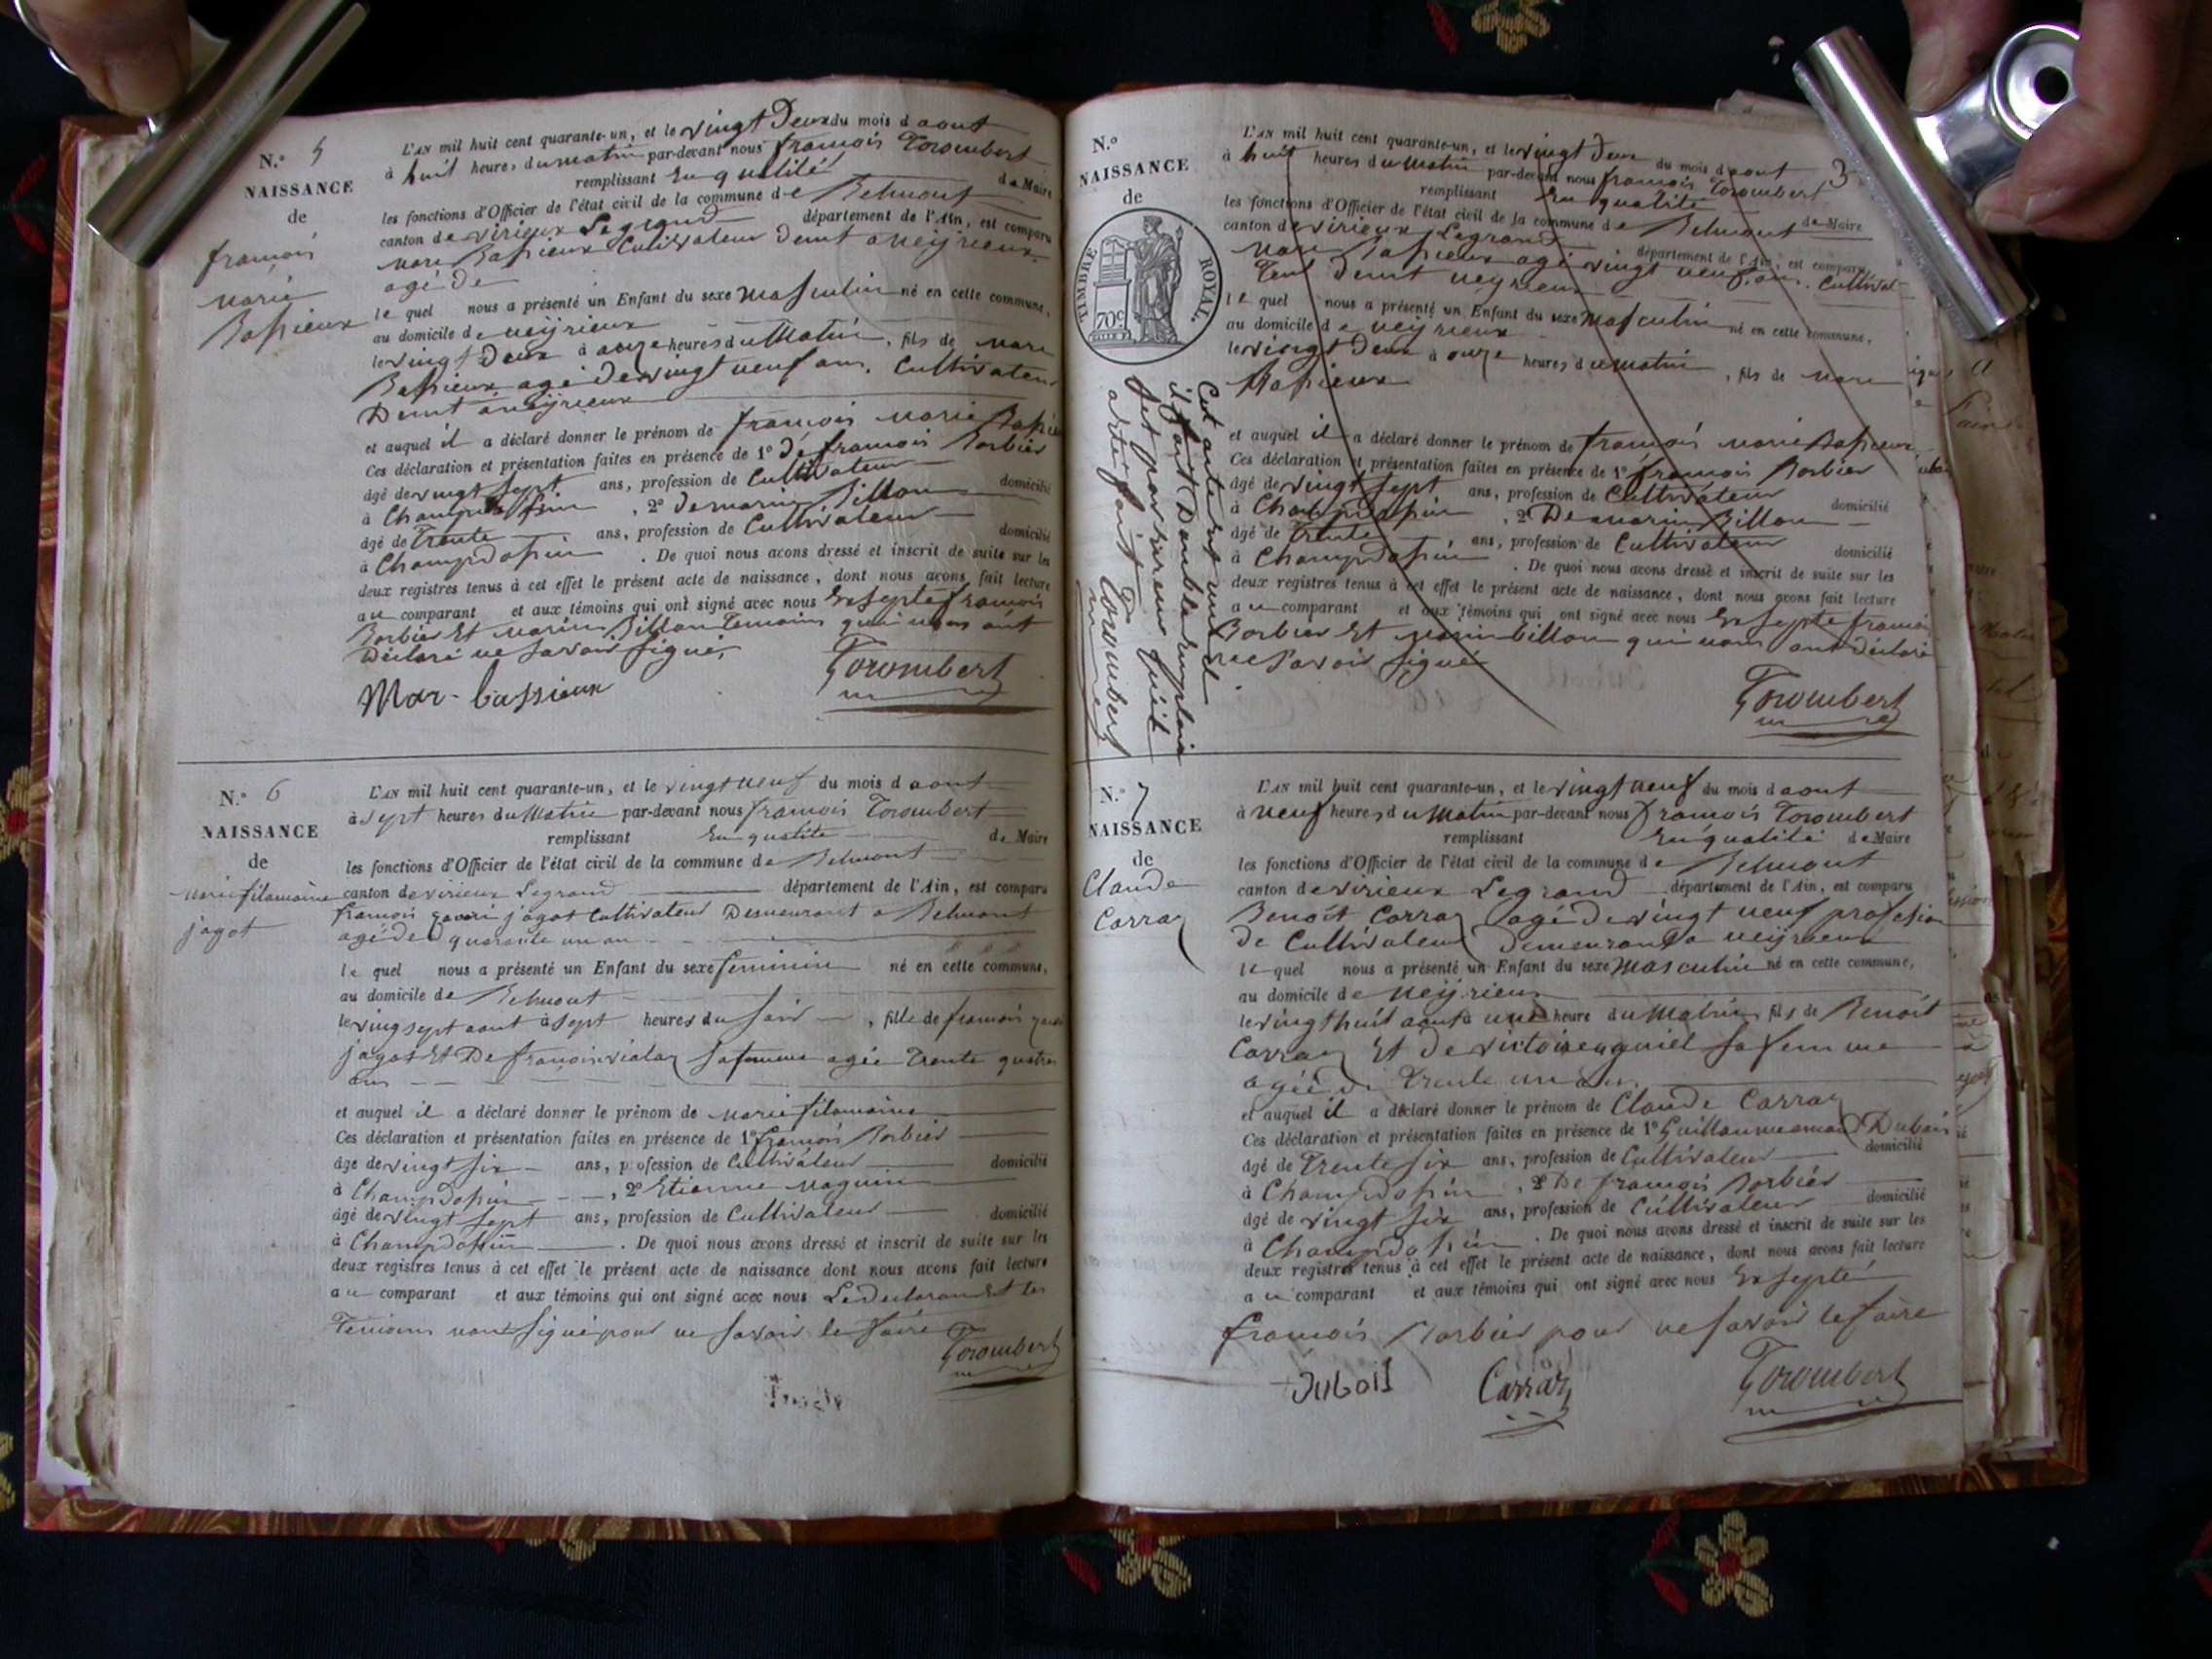 N.° 5
NAISSANCE
de
françois
marie
Bassieux
L'AN mil huit cent quarante-un, et le vingt Deux du mois d aout
à huit heures du matin par-devant nous françois Torombert
remplissant En qualité de Maire
les fonctions d'Officier de l'état civil de la commune de Belmont
canton de virieux Legrand département de l'Ain, est comparu
marc Bassieux Cultivateur demt a neÿrieux
agé de
le quel nous a présenté un Enfant du sexe masculin né en cette commune,
au domicile de neÿrieux
le vingt Deux à onze heures du matin, fils de marc
Bassieux agé de vingt neuf ans, Cultivateur
Demt à neÿrieux
et auquel il a déclaré donner le prénom de françois marie Bassieu
Ces déclaration et présentation faites en présence de 1° De françois Borbier
âgé de vingt sept ans, profession de Cultivateur domicilié
à Champdossin, 2° de marin Billon
âgé de Trente ans, profession de Cultivateur domicilié
à Champdossin. De quoi nous avons dressé et inscrit de suite sur les
deux registres tenus à cet effet le présent acte de naissance, dont nous avons fait lecture
au comparant et aux témoins qui ont signé avec nous Excepté françois
Borbier Et marin Billon Temoins qui nous ont
Déclaré ne savoir signé,
Mar- bassieux Torombert
N.° 6
NAISSANCE
de
marie filomaine
jagot
L'AN mil huit cent quarante-un, et le vingt neuf du mois d aout
à sept heures du Matin par-devant nous françois Torombert
remplissant En qualité de Maire
les fonctions d'Officier de l'état civil de la commune de Belmont
canton de virieux Legrand département de l'Ain, est comparu
françois jagot Cultivateur Demeurant a Belmont
agé de quarante un an
le quel nous a présenté un Enfant du sexe feminin né en cette commune,
au domicile de Belmont
le vingsept aout à sept heures du soir, fille de françois
jagot Et De sa femme agée Trente quatre
ans
et auquel il a déclaré donner le prénom de marie filomaine
Ces déclaration et présentation faites en présence de 1° françois Borbier
âgé de vingt six ans, profession de Cultivateur domicilié
à Champdossin, 2° Etienne Maguin
âgé de vingt sept ans, profession de Cultivateur domicilié
à Champdossin. De quoi nous avons dressé et inscrit de suite sur les
deux registres tenus à cet effet le présent acte de naissance dont nous avons fait lecture
au comparant et aux témoins qui ont signé avec nous Le declarant Et les
Temoins nont signé pour ne savoir le faire
Torombert
3
N.°
NAISSANCE
de
TIMBRE ROYAL.
70c
L'AN mil huit cent quarante-un, et le vingt Deux du mois d aout
à huit heures du Matin par-devant nous françois Torombert
remplissant En qualité de Maire
les fonctions d'Officier de l'état civil de la commune de Belmont
canton de virieux Legrand département de l'Ain, est comparu
marc Bassieux agé vingt neuf ans. Cultivat
demt neÿrieux
le quel nous a présenté un Enfant du sexe masculin né en cette commune,
au domicile de neÿrieux
le vingt Deux à onze heures du matin, fils de marc
Bassieux
et auquel il a déclaré donner le prénom de françois marie Bassieux
Ces déclaration et présentation faites en présence de 1° françois Borbier
âgé de vingt sept ans, profession de Cultivateur domicilié
à Champdossin, 2° De marin Billon
âgé de Trente ans, profession de Cultivateur domicilié
à Champdossin. De quoi nous avons dressé et inscrit de suite sur les
deux registres tenus à cet effet le présent acte de naissance, dont nous avons fait lecture
au comparant et aux témoins qui ont signé avec nous Excepté françois
Borbier Et marin billon qui nous ont déclaré
ne savoir signé
Torombert
Cet acte est nul et
il fait Double Emplois
c'est par erreur qu'il
a été fait Torombert
N.° 7
NAISSANCE
de
Claude
Carraz
L'AN mil huit cent quarante-un, et le vingt neuf du mois d aout
à neuf heures du Matin par-devant nous françois Torombert
remplissant En qualité de Maire
les fonctions d'Officier de l'état civil de la commune de Belmont
canton de virieux Legrand département de l'Ain, est comparu
Benoit Carraz agé de vingt neuf profession
de Cultivateur demeurant a neÿrieux
le quel nous a présenté un Enfant du sexe masculin né en cette commune,
au domicile de neÿrieux
le vingt huit aout à une heure du Matin, fils de Benoit
Carraz Et de victoire sa femme
agée de Trente un ans.
et auquel il a déclaré donner le prénom de Claude Carraz
Ces déclaration et présentation faites en présence de 1° Guillaume Dubois
âgé de Trente six ans, profession de Cultivateur domicilié
à Champdossin, 2° De françois Borbier
âgé de vingt six ans, profession de Cultivateur domicilié
à Champdossin. De quoi nous avons dressé et inscrit de suite sur les
deux registres tenus à cet effet le présent acte de naissance, dont nous avons fait lecture
au comparant et aux témoins qui ont signé avec nous Excepté
françois Borbier pour ne savoir le faire
Dubois Carraz Torombert